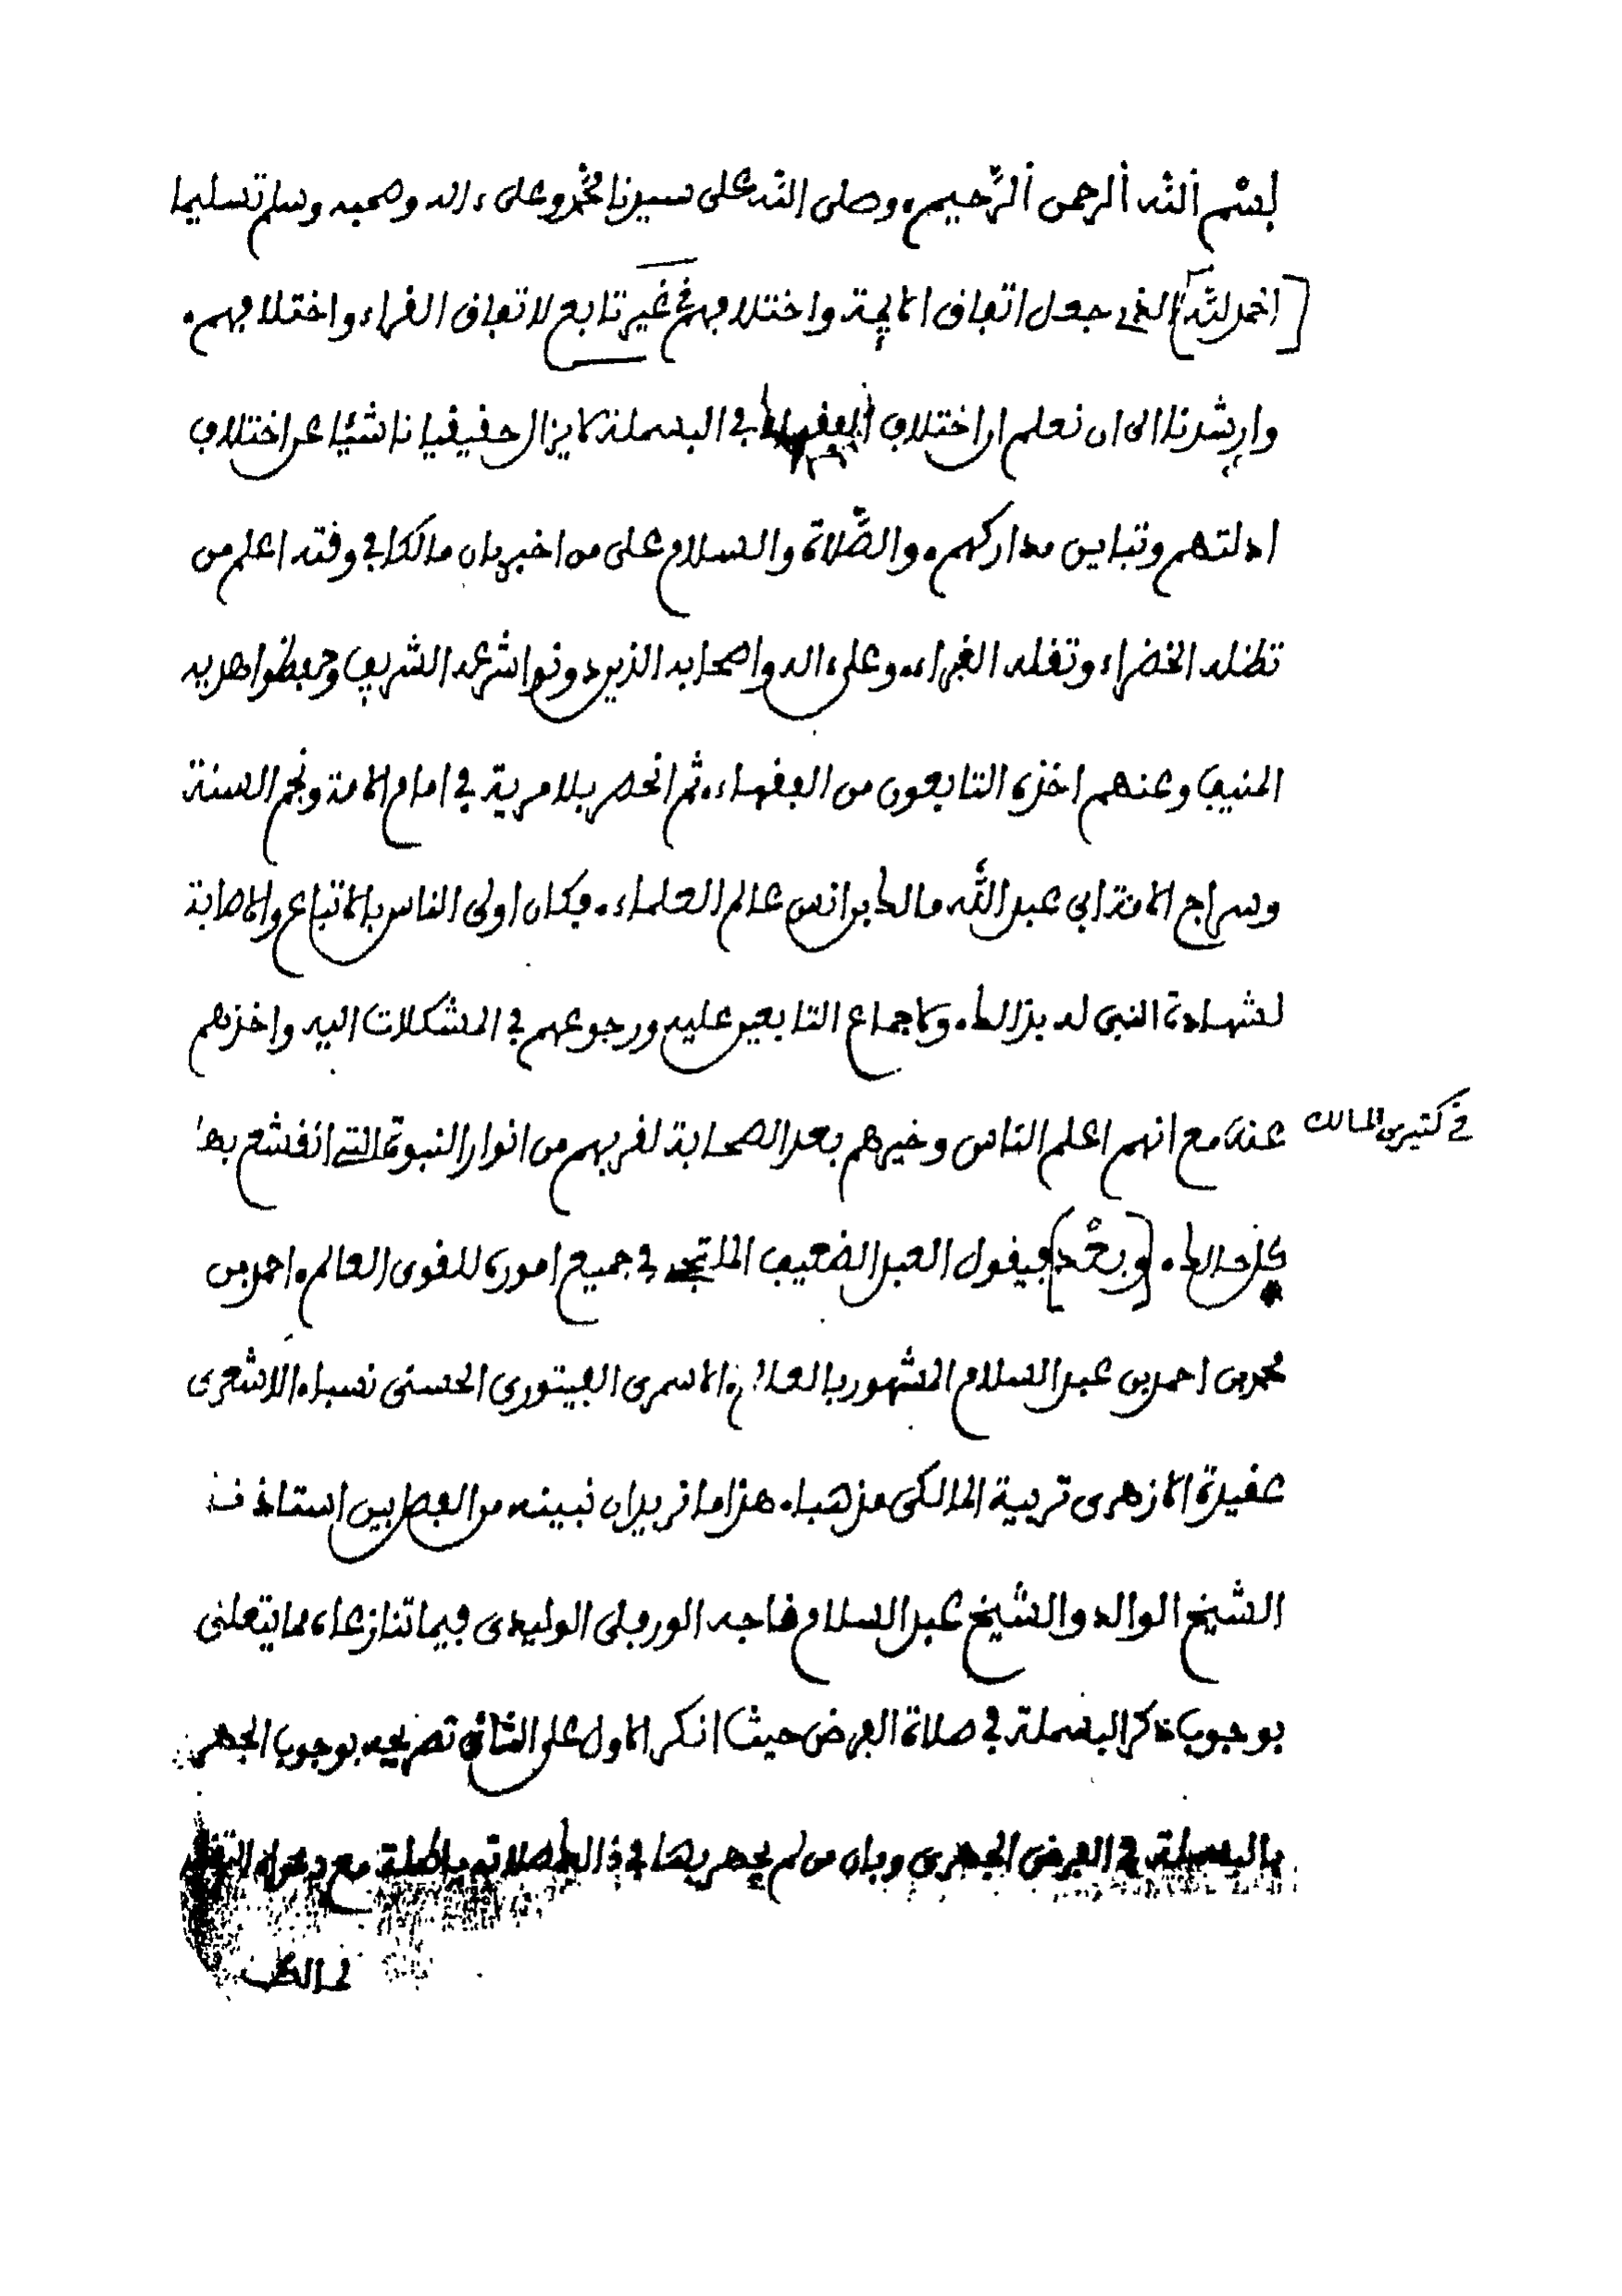 بسْم ألله ألرحمن ألرَّحيم. وصلى الله على سيدنا محمد وعلى ءاله وصحبه وسلم تسليما
[الحمد لله] الذى جعل اتفاق الايمة واختلافهم فى غير تابع لاتفاق القراء واختلافهم.
وارشدنا الى ان نعلم ان اختلاف الفقهاء فى البسملة لا يزال حقيقيا ناشئا عن اختلاف
ادلتهم وتباين مداركهم. والصَّلاة والسلام على من اخبر بان مالكا فى وقته اعلم من
تظله الخضراء وتقله الغبراء. وعلى ءاله واصحابه الذين دونوا شرعه الشريف وحفظوا هديه
المنيف وعنهم اخذه التابعون من الفقهاء. ثم انحصر بلا مرية فى امام الامة ونجم السنة
وسراج الامة ابى عبد الله مالك بن انس عالم العلماء. فكان اولى الناس بالاتباع والاصابة
لشهادة النبى له بذالك. ولاجماع التابعين عليه ورجوعهم فى المشكلات اليه واخذهم
عنه مع انهم اعلم الناس وخيرهم بعد الصحابة لقربهم من انوار النبوة التى انقشع بها
فى كثير من المسالك
كل حالك. [وبعْد] فيقول العبد الضعيف الملتجئ فى جميع اموره للقوى العالم. احمد بن
محمد بن احمد بن عبد السلام المشهور بالعالم الاسمرى الفيتورى الحسنى نسبا. الاشعرى
عقيدة الازهرى تربية المالكى مذهبا. هذا ما نريد ان نبينه من الفصل بين استاذنا
الشيخ الوالد والشيخ عبد السلام قاجه الورفلى الوليدى فيما تنازعاه مما يتعلق
بوجوب ذكر البسملة فى صلاة الفرض حيث انكر الاول على الثانى تصريحه بوجوب الجهر
بالبسملة فى الفرض الجهرى وبان من لم يجهر بها فى ذالك صلاته باطلة مع دعواه
لمالك